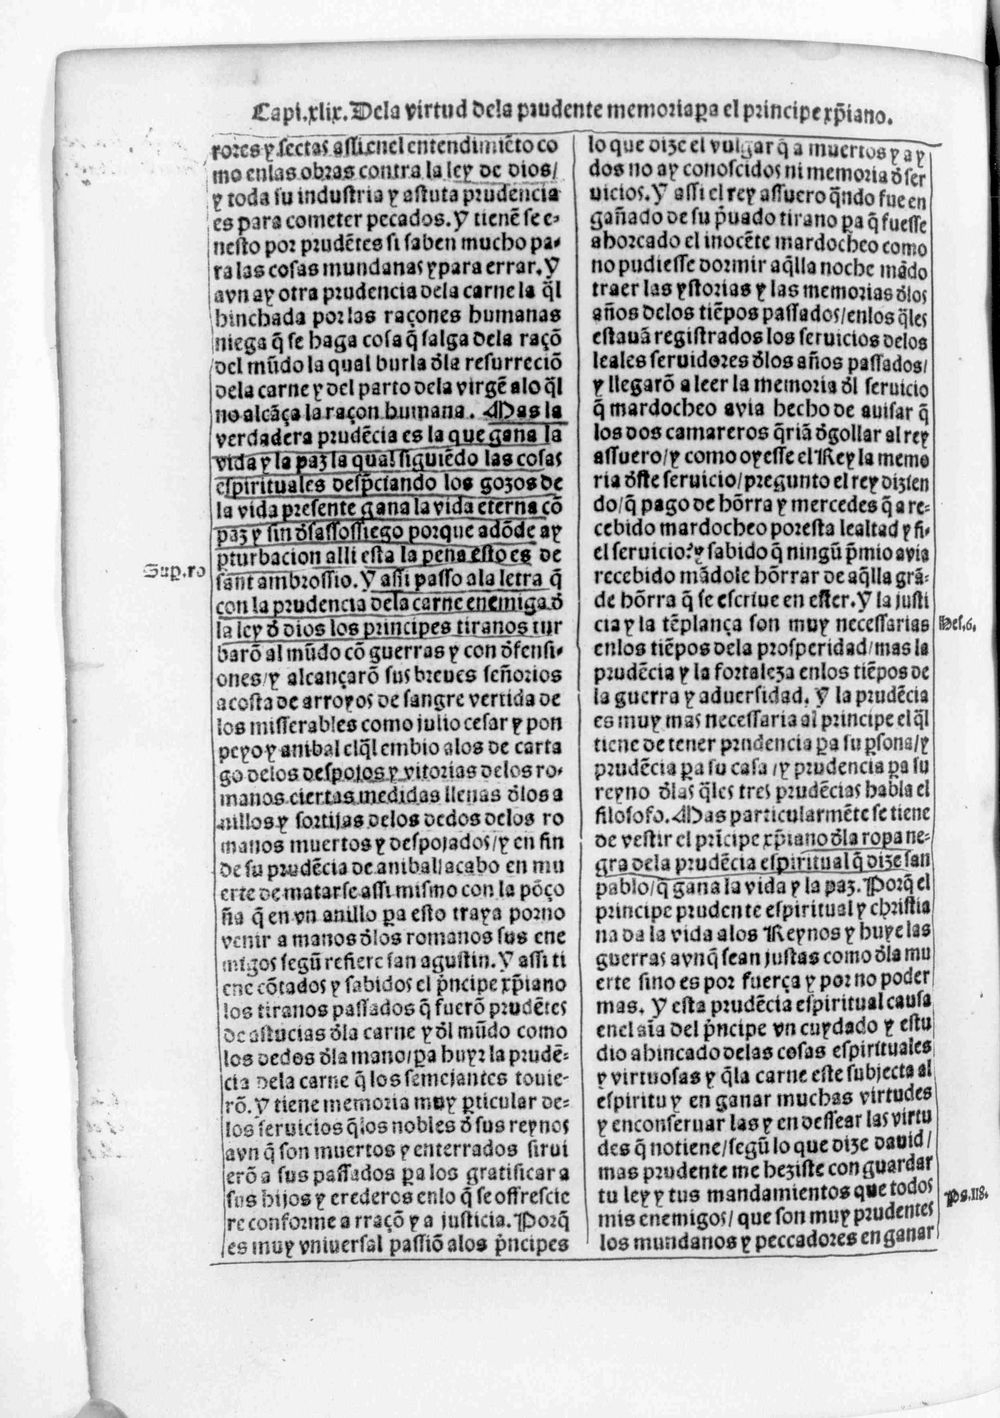 Capi.xlix. Dela virtud dela prudente memoria ꝑa el principe xp̃iano.
rores y sectas assi enel entendimiẽto co
mo enlas obras contra la ley de dios/
y toda su industria y astuta prudencia
es para cometer pecados. Y tienẽ se e-
nesto por prudẽtes si saben mucho pa-
ra las cosas mundanas y para errar. Y
avn ay otra prudencia dela carne la q̃l
hinchada por las raçones humanas
niega q̃ se haga cosa q̃ salga dela raçõ
del mũdo la qual burla d̃la resurreciõ
dela carne y del parto dela virgẽ alo q̃l
no alcãça la raçon humana. Mas la
verdadera prudẽcia es la que gana la
vida y la paz la qual siguiẽdo las cosas
espirituales desp̃ciando los gozos de
la vida presente gana la vida eterna cõ
paz y sin d̃sassossiego porque adõde ay
ꝑturbacion alli esta la pena esto es de
sant ambrossio. Y assi passo ala letra q̃
Suꝑ.ro
con la prudencia dela carne enemiga d̃
la ley d̃ dios los principes tiranos tur
barõ al mũdo cõ guerras y con d̃fensi-
ones/y alcançarõ sus breues señorios
acosta de arroyos de sangre vertida de
los misserables como julio cesar y pon
peyo y anibal elq̃l embio alos de carta
go delos despojos y vitorias delos ro-
manos ciertas medidas llenas d̃los a
nillos y sortijas delos dedos delos ro
manos muertos y despojados/y en fin
de su prudẽcia de anibal/acabo en mu
erte de matarse assi mismo con la põço
ña q̃ en vn anillo ꝑa esto traya por no
venir a manos d̃los romanos sus ene
migos segũ refiere san agustin. Y assi ti
ene cõtados y sabidos el p̃ncipe xp̃iano
los tiranos passados q̃ fuerõ prudẽtes
de astucias d̃la carne y d̃l mũdo como
los dedos d̃la mano/ꝑa huyr la prudẽ-
cia dela carne q̃ los semejantes touie-
rõ. Y tiene memoria muy ꝑticular de-
los seruicios q̃ los nobles d̃ sus reynos
avn q̃ son muertos y enterrados sirui
erõ a sus passados ꝑa los gratificar a
sus hijos y erederos enlo q̃ se offrescie
re conforme a rraçõ y a justicia. Porq̃
es muy vniuersal passiõ alos p̃ncipes
lo que dize el vulgar q̃ a muertos y a y
dos no ay conoscidos ni memoria d̃ ser
uicios. Y assi el rey assuero q̃ndo fue en
gañado de su p̃uado tirano ꝑa q̃ fuesse
ahorcado el inocẽte mardocheo como
no pudiesse dormir aq̃lla noche mãdo
traer las ystorias y las memorias d̃los
años delos tiẽpos passados/enlos q̃les
estauã registrados los seruicios delos
leales seruidores d̃los años passados/
y llegarõ a leer la memoria d̃l seruicio
q̃ mardocheo avia hecho de auisar q̃
los dos camareros q̃riã d̃gollar al rey
assuero/y como oyesse el Rey la memo
ria d̃ste seruicio/pregunto el rey diziẽn
do/q̃ pago de hõrra y mercedes q̃ a re-
cebido mardocheo por esta lealtad y fi-
el seruicio? y sabido q̃ ningũ p̃mio avia
recebido mãdole hõrrar de aq̃lla grã-
de hõrra q̃ se escriue en ester. Y la justi
cia y la tẽplança son muy necessarias
Hes.6.
enlos tiẽpos dela prosperidad/mas la
prudẽcia y la fortaleza enlos tiẽpos de
la guerra y aduersidad. Y la prudẽcia
es muy mas necessaria al principe el q̃l
tiene de tener prudencia ꝑa su ꝑsona/y
prudẽcia ꝑa su casa /y prudencia ꝑa su
reyno d̃las q̃les tres prudẽcias habla el
filosofo. Mas particularmẽte se tiene
de vestir el prĩcipe xp̃iano d̃la ropa ne-
gra dela prudẽcia espiritual q̃ dize san
pablo/q̃ gana la vida y la paz. Porq̃ el
principe prudente espiritual y christia
na da la vida alos Reynos y huye las
guerras avnq̃ sean justas como d̃la mu
erte sino es por fuerça y por no poder
mas. Y esta prudẽcia espiritual causa
enel aĩa del p̃ncipe vn cuydado y estu
dio ahincado delas cosas espirituales
y virtuosas y q̃ la carne este subjecta al
espiritu y en ganar muchas virtudes
y en conseruar las y en dessear las virtu
des q̃ no tiene/segũ lo que dize dauid/
mas prudente me heziste con guardar
tu ley y tus mandamientos que todos
Ps.118.
mis enemigos/ que son muy prudentes
los mundanos y peccadores en ganar